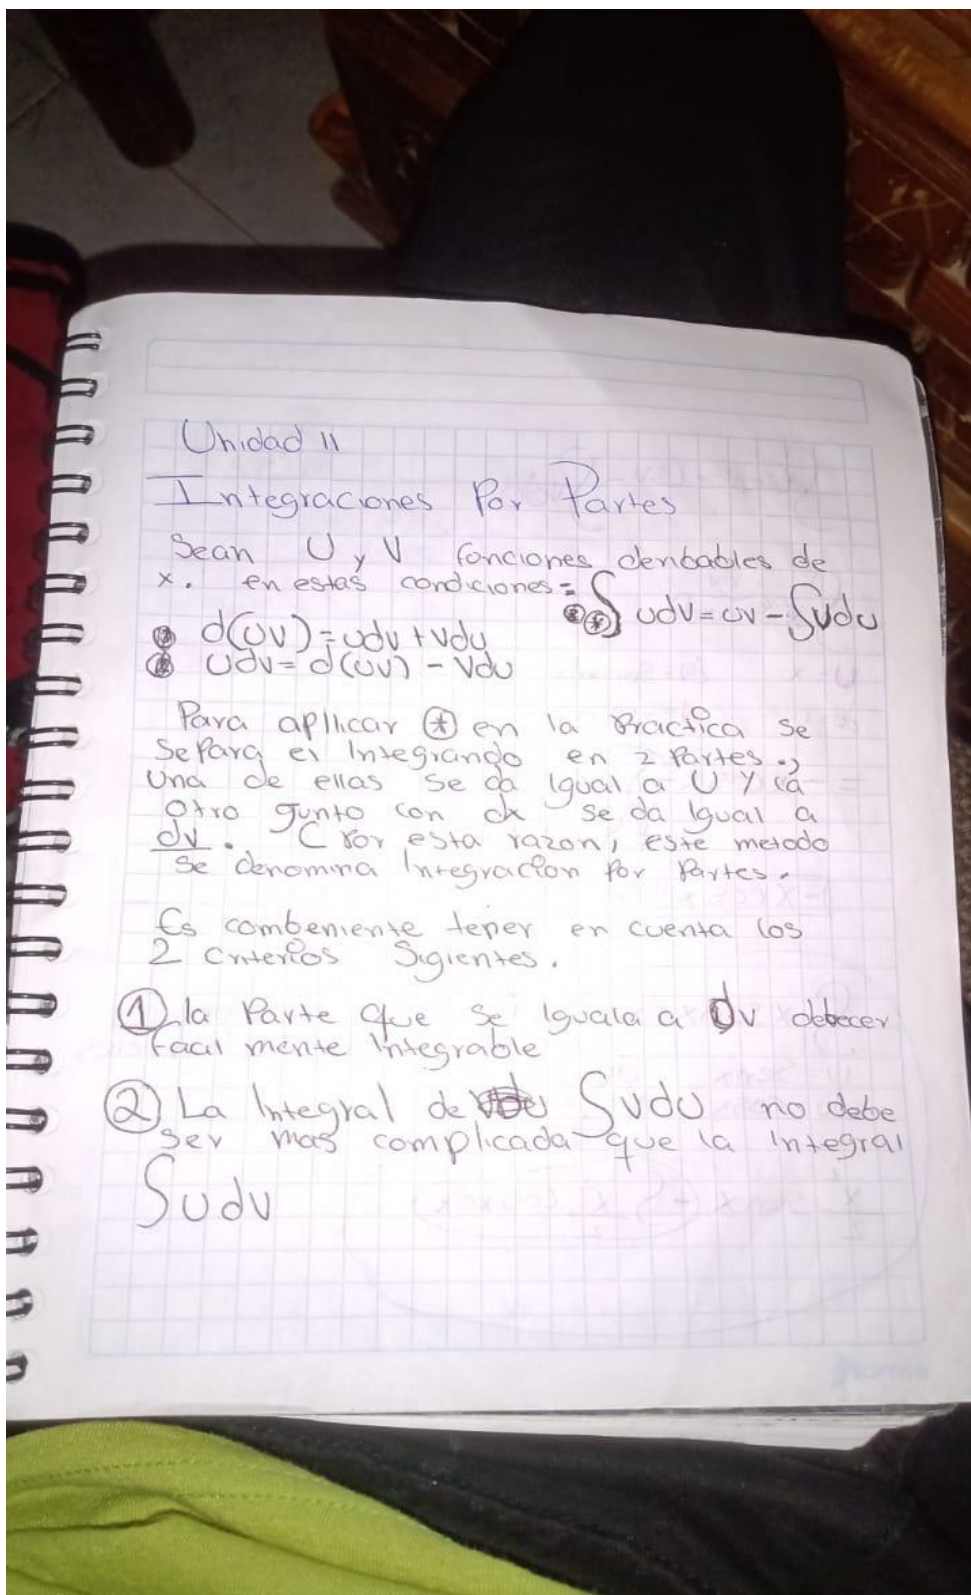 Unidad 11
Integraciones Por Partes
Sean U y V fonciones deribables de
x. en estas condiciones = ∫ udv = uv - ∫vdu
d(uv) = udv + vdu
udv = d(uv) - vdu
Para apllicar (*) en la Practica se
separa el Integrando en 2 Partes.,
Una de ellas se da Igual a U y la
otro Junto con dx se da Igual a
dv. ( Por esta razon, este metodo
se denomina Integracion por Partes.
Es combeniente tener en cuenta los
2 criterios Sigientes.
① la Parte que se Iguala a dv debecer
Facil mente Integrable
② La Integral de ∫vdu no debe
ser mas complicada que la integral
∫udv
Norma